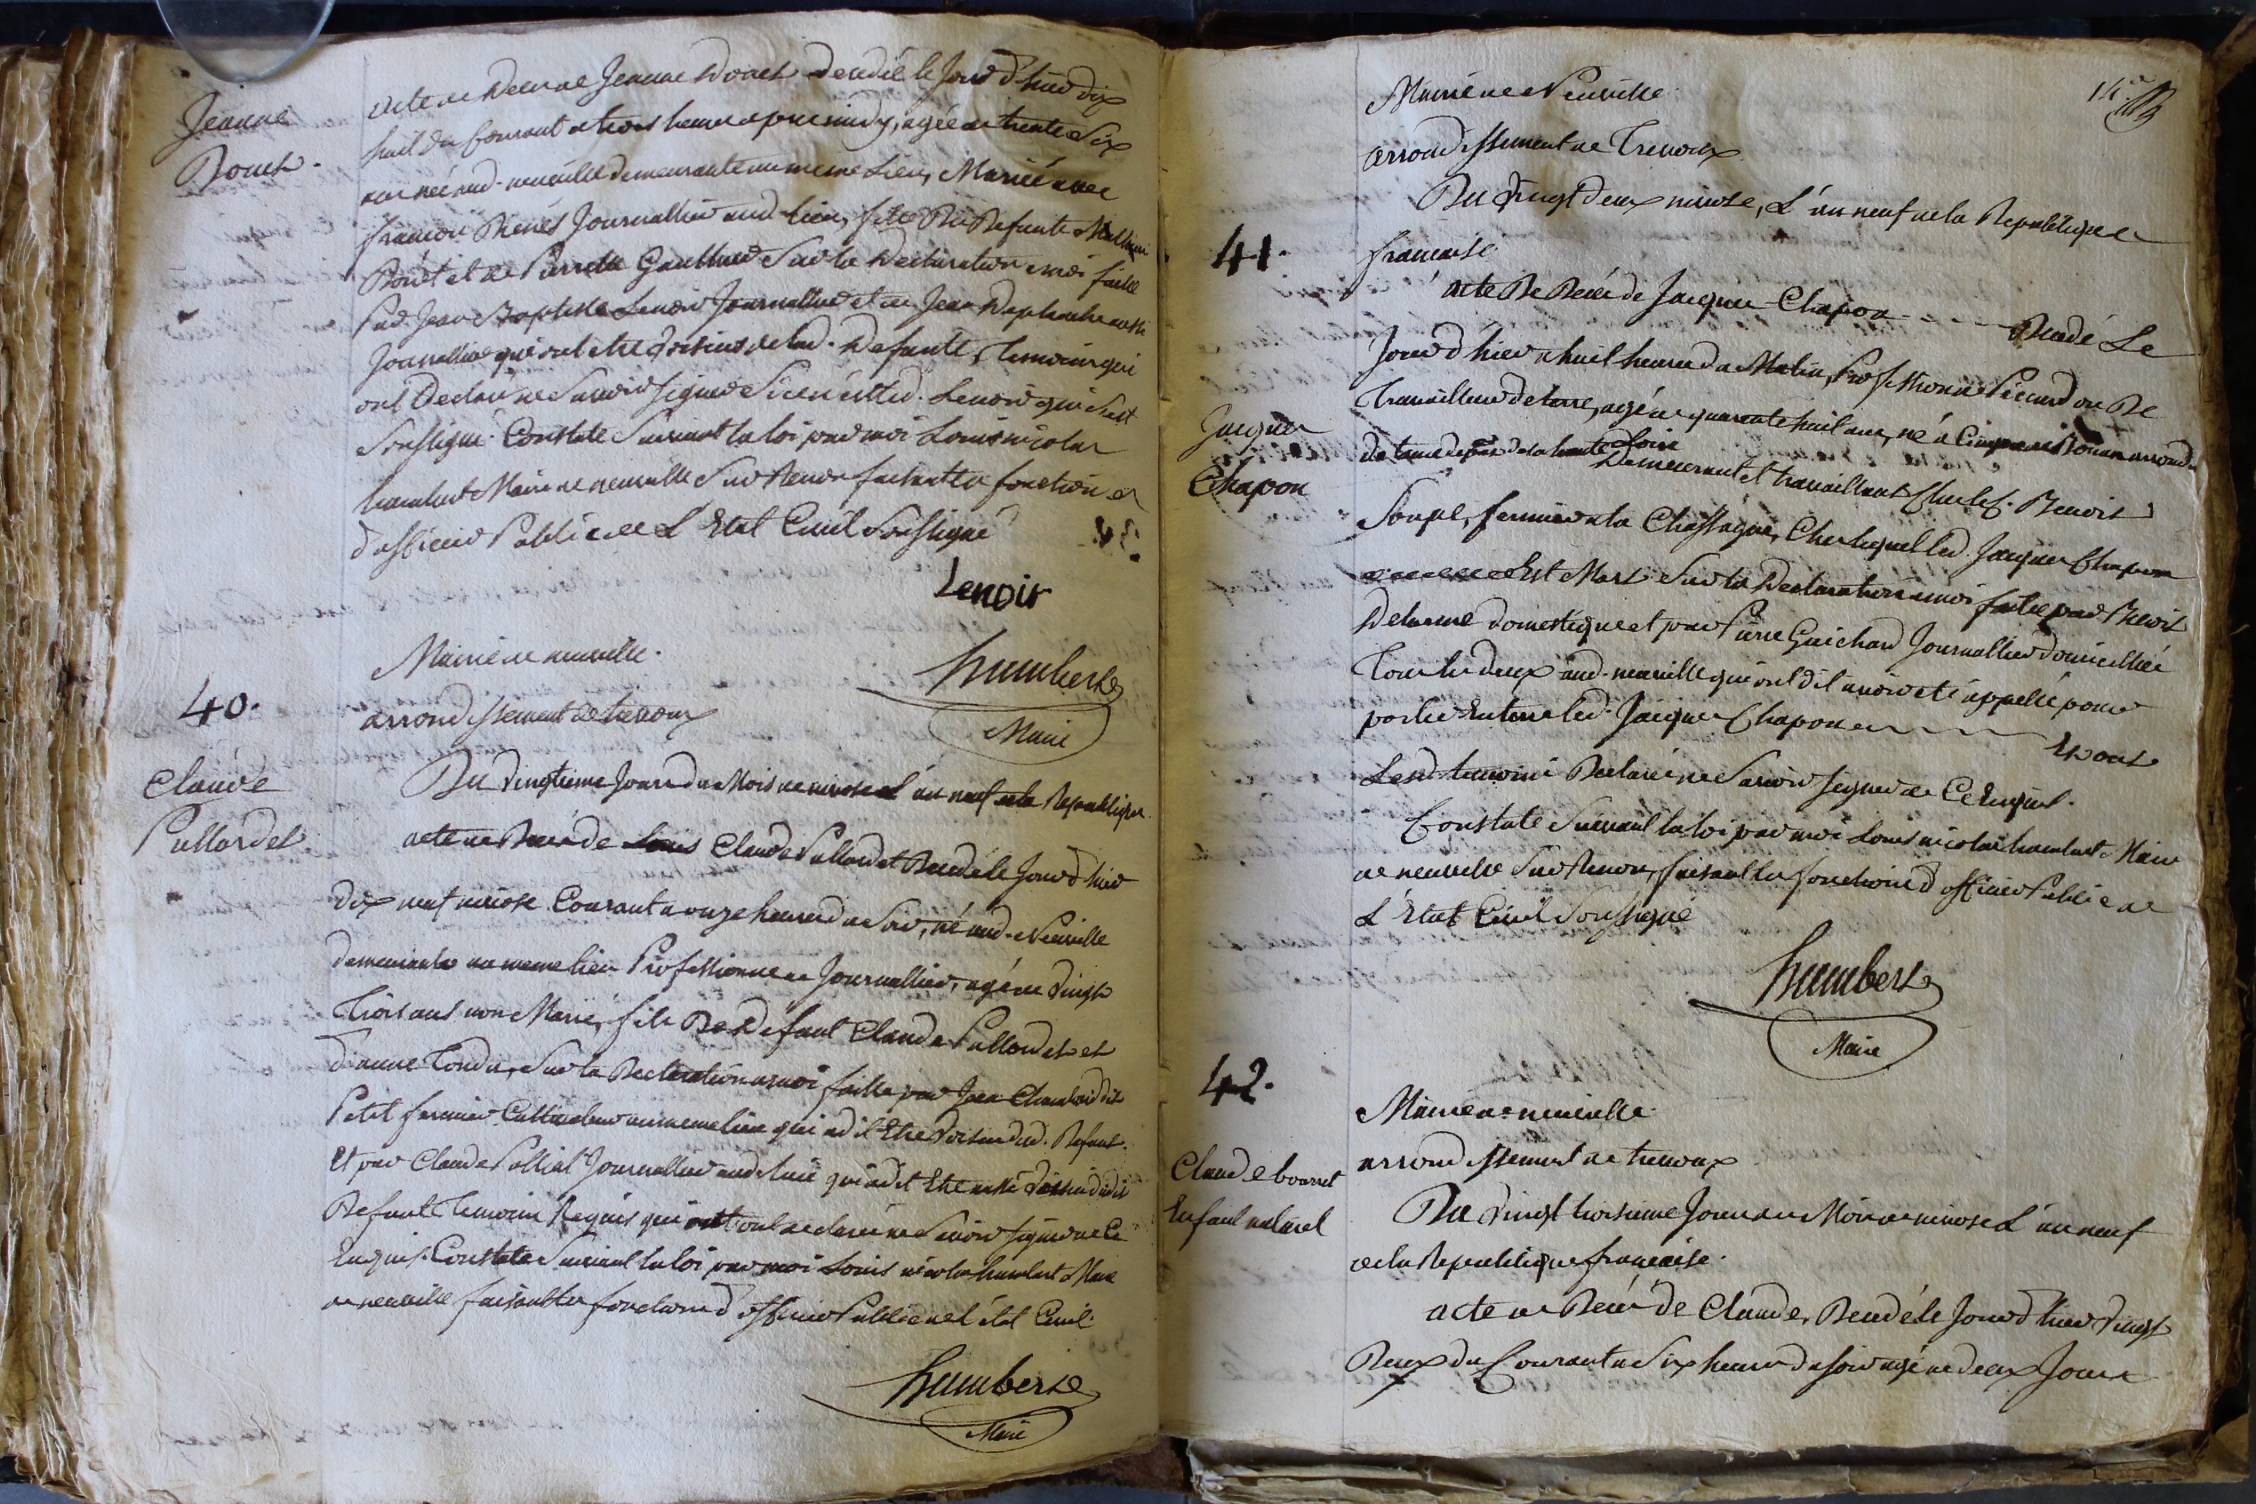 Jeanne
Donet.
acte de Décé de Jeanne Donet décédée le Jour d'hier dix
huit du Courant a trois heure apres midy, agée de trente Six
ans née aud. neuville demeurante au meme Lieu, Mariée avec
françois Journallier aud. lieu, fille De Defunte
et de Pierrette Sur la Declaration a moi faitte
Par Jean Baptiste Lenoir Journallier et de Jean aussi
Journallier qui ont etre voisins de lad. Defunte, Temoins qui
ont Déclaré ne Savoir signer Si ce n'est led. Lenoir qui s'est
Soussigné. Constaté Suivant la loi par moi Louis nicolas
humbert Maire de neuville Sur Renon faisant les fonctions
d'officier Public de L'Etat Civil Soussigné
Lenoir
humbert
Maire
40.
Claude
Pallordet
Mairie de neuville.
arrondissement de trevoux
Du vingtieme Jour du Mois de nivose L'an neuf de la Republique
acte de Décé de Louis Claude Pallordet Décédé le Jour d'hier
dix neuf nivose Courant a onze heures du Soir, né aud. Neuville
demeurant au meme lieu Professionne de Journallier, agé de vingt
Trois ans non Marié, fils De Defunt Claude Pallordet et
d'anne Sur la Declaration a moi faitte par Jean dit
Petit fermier Cultivateur au meme lieu qui a dit Etre voisin dud. Defunt.
Et par Claude Journallier aud. lieu qui a dit Etre aussi voisin dudit
Defunt Temoins Requis qui ont declaré ne Savoir signer de Ce
Enquis. Constaté Suivant la loi par moi Louis nicolas humbert Maire
de neuville faisant les fonctions d'officier Public de l'état Civil.
humbert
Maire
Mairie de Neuville
arrondissement de Trevoux
Du vingt deux nivose, L'an neuf de la Republique
41.
française
acte De Décé de Jacques Chapon Décédé Le
Jour d'hier a huit heures du Matin, Profession de ou De
Travailleur de terre, agé de quarante huit ans, né a
de la haute Loire
Demeurant et travaillant Chez Benoit
Jacques
Chapon
fermier a la Chassagne, Chez lequel led. Jacques Chapon
Est Mort Sur la Declaration a moi faitte par Benoit
domestique et par Pierre Guichard Journallier domicilliés
Tous les deux aud. neuville qui ont dit avoir eté appellé pour
porter En terre led. Jacques Chapon
Lesd. temoins Declaré ne Savoir signer de Ce Enquis.
Constaté Suivant la loi par moi Louis nicolas humbert Maire
de neuville Sur Renon, faisant les fonctions d'officier Public de
L'Etat Civil Soussigné
humbert
Maire
42.
Claude bourret
Enfant naturel
Mairie de neuville
arrondissement de trevoux
Du vingt troisieme Jour du Mois de nivose L'an neuf
de la Republique française.
acte de Décé de Claude, Décédé le Jour d'hier vingt
Deux du Courant a Six heures du soir agé de deux Jours